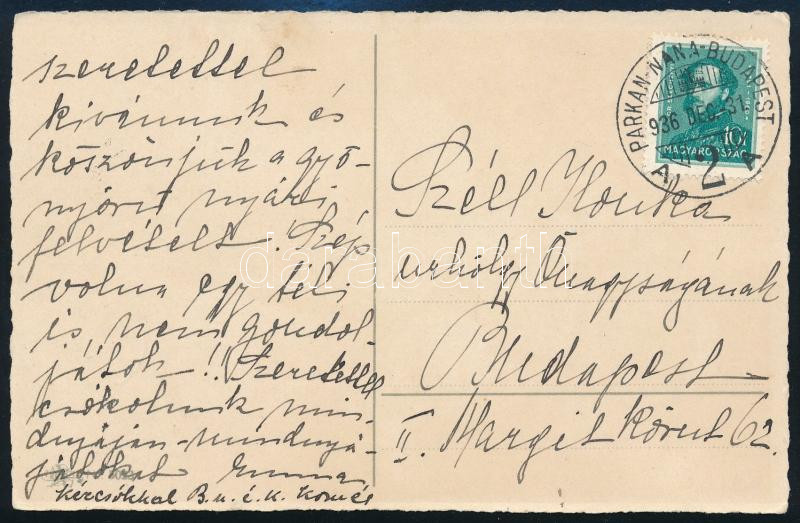 szeretettel
kivánunk és
köszönjük a gyö-
nyörű nyári
felvételt. Szép
volna egy téli
is, nem gondol-
játok! Szeretettel
csókolunk min-
dnyáján-mindnyá-
játokat Emma
Kézcsókkal B. u. é. k.
PARKAN-NANA-BUDAPEST
936 DEC. 31.
2
A
10f
MAGYARORSZÁG
Széll Ilonka
urhölgy Őnagyságának
Budapest
II. Margit Körut 62.
darabanth